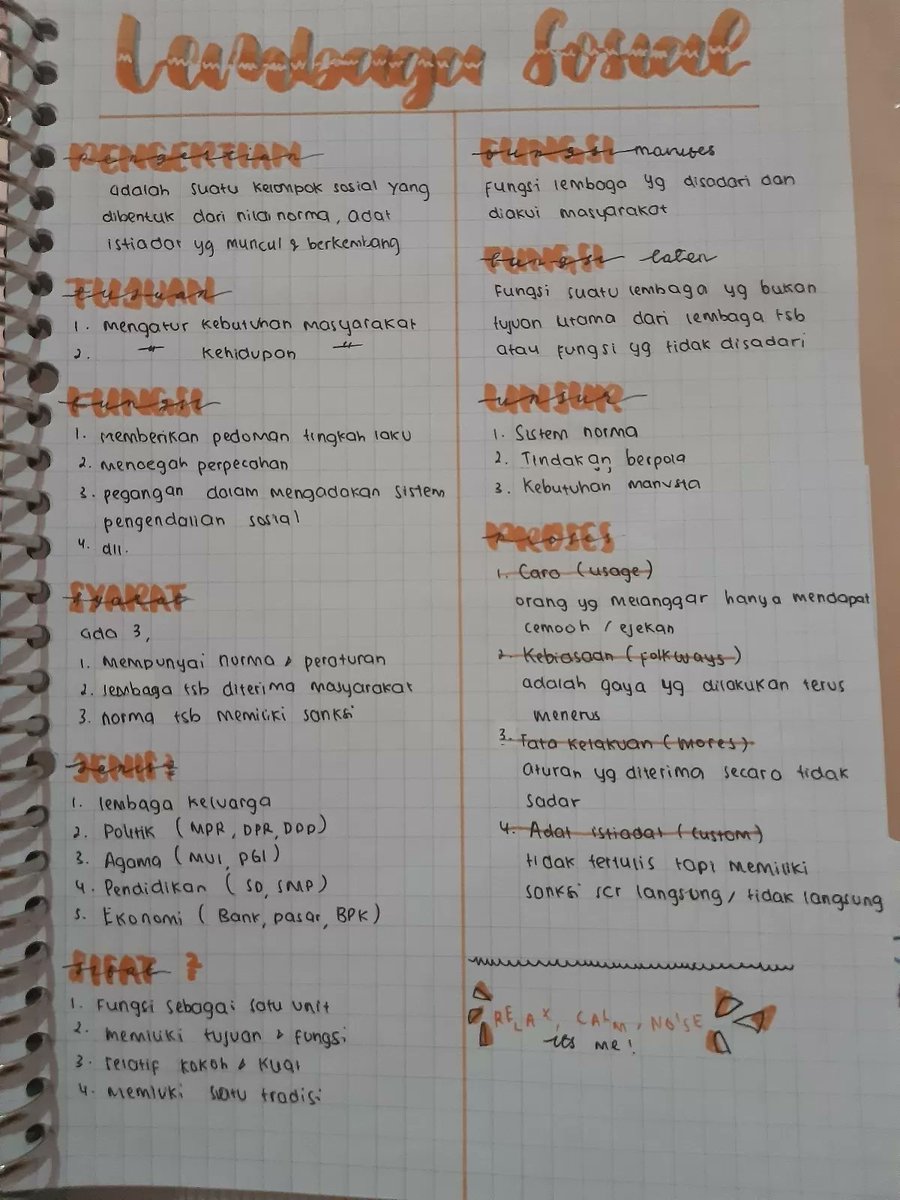 Lembaga Sosial
PENGERTIAN
adalah suatu kelompok sosial yang
dibentuk dari nilai norma, adat
istiador yg muncul & berkembang
TUJUAN
1. mengatur kebutuhan masyarakat
2. -"- kehidupan -"-
FUNGSI
1. memberikan pedoman tingkah laku
2. mencegah perpecahan
3. pegangan dalam mengadakan sistem
pengendalian sosial
4. dll.
SYARAT
ada 3,
1. mempunyai norma & peraturan
2. lembaga tsb diterima masyarakat
3. norma tsb memiliki sanksi
JENIS²
1. lembaga keluarga
2. Politik (MPR, DPR, DPD)
3. Agama (MUI, PGI)
4. Pendidikan (SD, SMP)
5. Ekonomi (Bank, pasar, BPK)
SIFAT²
1. Fungsi sebagai satu unit
2. memiliki tujuan & fungsi
3. relatif kokoh & kuat
4. memiliki satu tradisi
FUNGSI manifes
Fungsi lembaga yg disadari dan
diakui masyarakat
FUNGSI laten
Fungsi suatu lembaga yg bukan
tujuan utama dari lembaga tsb
atau fungsi yg tidak disadari
UNSUR
1. Sistem norma
2. Tindakan berpola
3. Kebutuhan manusia
PROSES
1. Cara (usage)
orang yg melanggar hanya mendapat
cemooh / ejekan
2. Kebiasaan (folkways)
adalah gaya yg dilakukan terus
menerus
3. Tata Kelakuan (mores)
aturan yg diterima secara tidak
sadar
4. Adat istiadat (custom)
tidak tertulis tapi memiliki
sanksi scr langsung / tidak langsung
RELAX, CALM, NO'SE
its me!